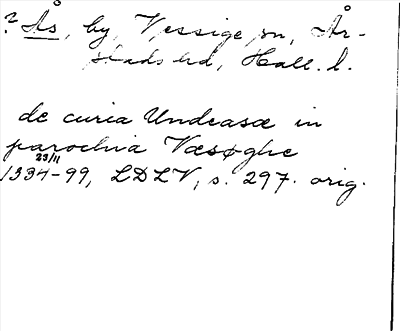 ? Ås, by, Vessige sn, År-
stads hd, Hall. l.
de curia Undeasæ in
parochia Væsøghe
23/11
1334-99, LDLV, s. 297. orig.